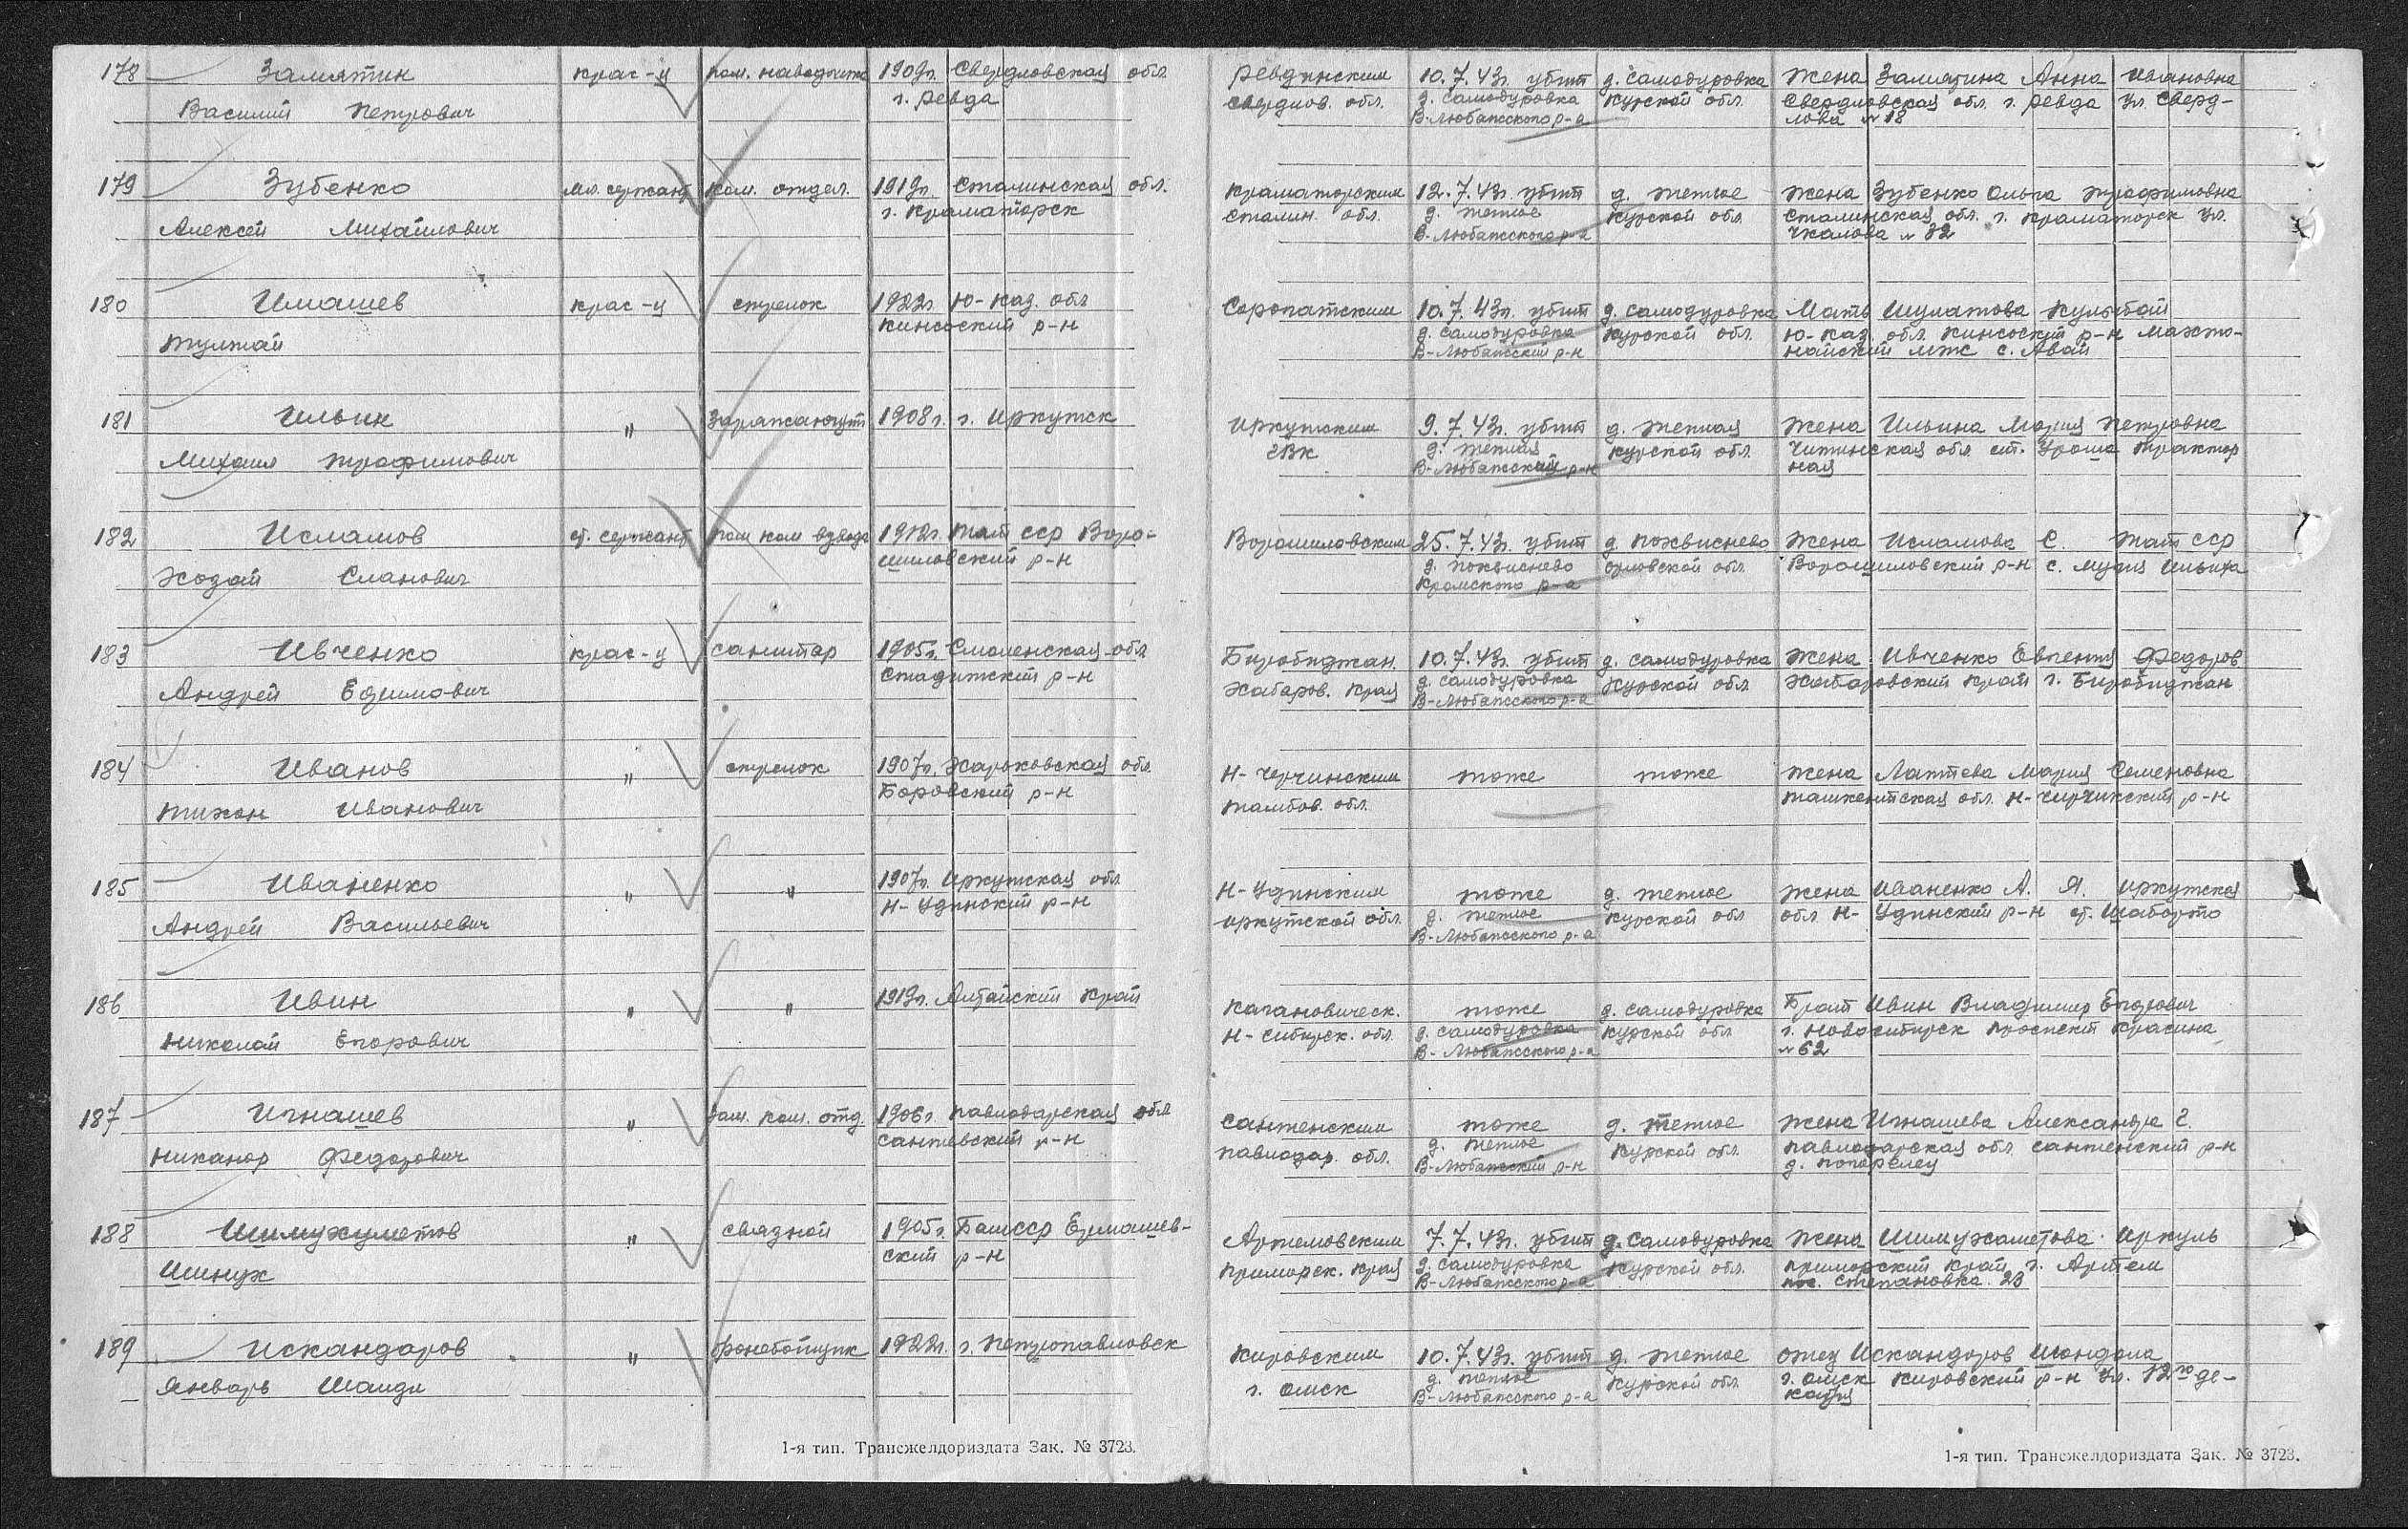 178 Замятин крас-ц пом. наводчика 1909г. Свердловская обл. Ревдинским 10.7.43г. убит д. Самодуровка Жена Замятина Анна Ивановна
Василий Петрович г. Ревда Свердлов. обл. д. Самодуровка Курской обл. Свердловская обл. г. Ревда ул. Сверд-
В-Любажского р-а лова № 18
179 Зубенко мл. сержант ком. отдел. 1919г. Сталинская обл. Краматорским 12.7.43г. убит д. Теплое Жена Зубенко Ольга Трофимовна
Алексей Михайлович г. Краматорск Сталин. обл. д. Теплое Курской обл Сталинская обл. г. Краматорск ул.
В-Любажского р-а Чкалова № 32
180 Имашев крас-ц стрелок 1922г. Ю-Каз. обл 10.7.43г. убит д. Самодуровка Мать
Тулжай р-н д. Самодуровка Курской обл. Ю-Каз. обл. р-н
В-Любажский р-н с. Авай
181 Ильин " Заряжающий 1908г. г. Иркутск Иркутским 9.7.43г. убит д. Теплая Жена Ильина Мария Петровна
Михаил Трофимович ГВК д. Теплая Курской обл. Читинская обл. ст. Трактор
В-Любажский р-н ная
182 Исламов ст. сержант пом ком взвода 1912г. Тат сср Воро- Ворошиловским 25.7.43г. убит д. Похвиснево Жена Исламова С. Тат сср
Ходай Сланович шиловский р-н д. Похвиснево Орловской обл. Ворошиловский р-н с.
Кромского р-а
183 Ивченко крас-ц санитар 1905г. Смоленская обл Биробиджан. 10.7.43г. убит д. Самодуровка Жена Ивченко Евгения Федоров
Андрей Ефимович р-н Хабаров. Края д. Самодуровка Курской обл Хабаровский Край г. Биробиджан
В-Любажского р-а
184 Иванов " стрелок 1907г. Харьковская обл. Н-Чирчинским тоже тоже Жена Лаптева Мария Семеновна
Тихон Иванович Боровский р-н Тамбов. обл. Ташкентская обл. Н-Чирчикский р-н
185 Иваненко " " 1907г. Иркутская обл Н-Удинским тоже д. Теплое Жена Иваненко А. Я. Иркутская
Андрей Васильевич Н-Удинский р-н Иркутской обл. д. Теплое Курской обл обл. Н-Удинский р-н ст.
В-Любажского р-а
186 Ивин " " 1919г. Алтайский Край Кагановическ. тоже д. Самодуровка Брат Ивин Владимир Егорович
Николай Егорович Н-Сибирск. обл. д. Самодуровка Курской обл г. Новосибирск проспект Красина
В-Любажского р-а № 62
187 Игнашев " ком. отд. 1906г. Павлодарская обл тоже д. Теплое Жена Игнашева Александра Г.
Никанор Федорович р-н Павлодар. обл. д. Теплое Курской обл. Павлодарская обл р-н
В-Любажский р-н д.
188 Шимухуметов " связной 1905г. Башсср Ермашев- Артемовским 7.7.43г. убит д. Самодуровка Жена Шимухаметова Иркуль
Шинух ский р-н Приморск. Края д. Самодуровка Курской обл. Приморский Край г. Артем
В-Любажского р-а пос. Степановка 23
189 Искандаров " бронебойщик 1922г. г. Петропавловск Кировским 10.7.43г. убит д. Теплое отец Искандаров
Январь Шанди г. Омск д. Теплое Курской обл. г. Омск Кировский р-н ул. 12го де-
В-Любажского р-а кабря
1-я тип. Трансжелдориздата Зак. № 3723. 1-я тип. Трансжелдориздата Зак. № 3723.